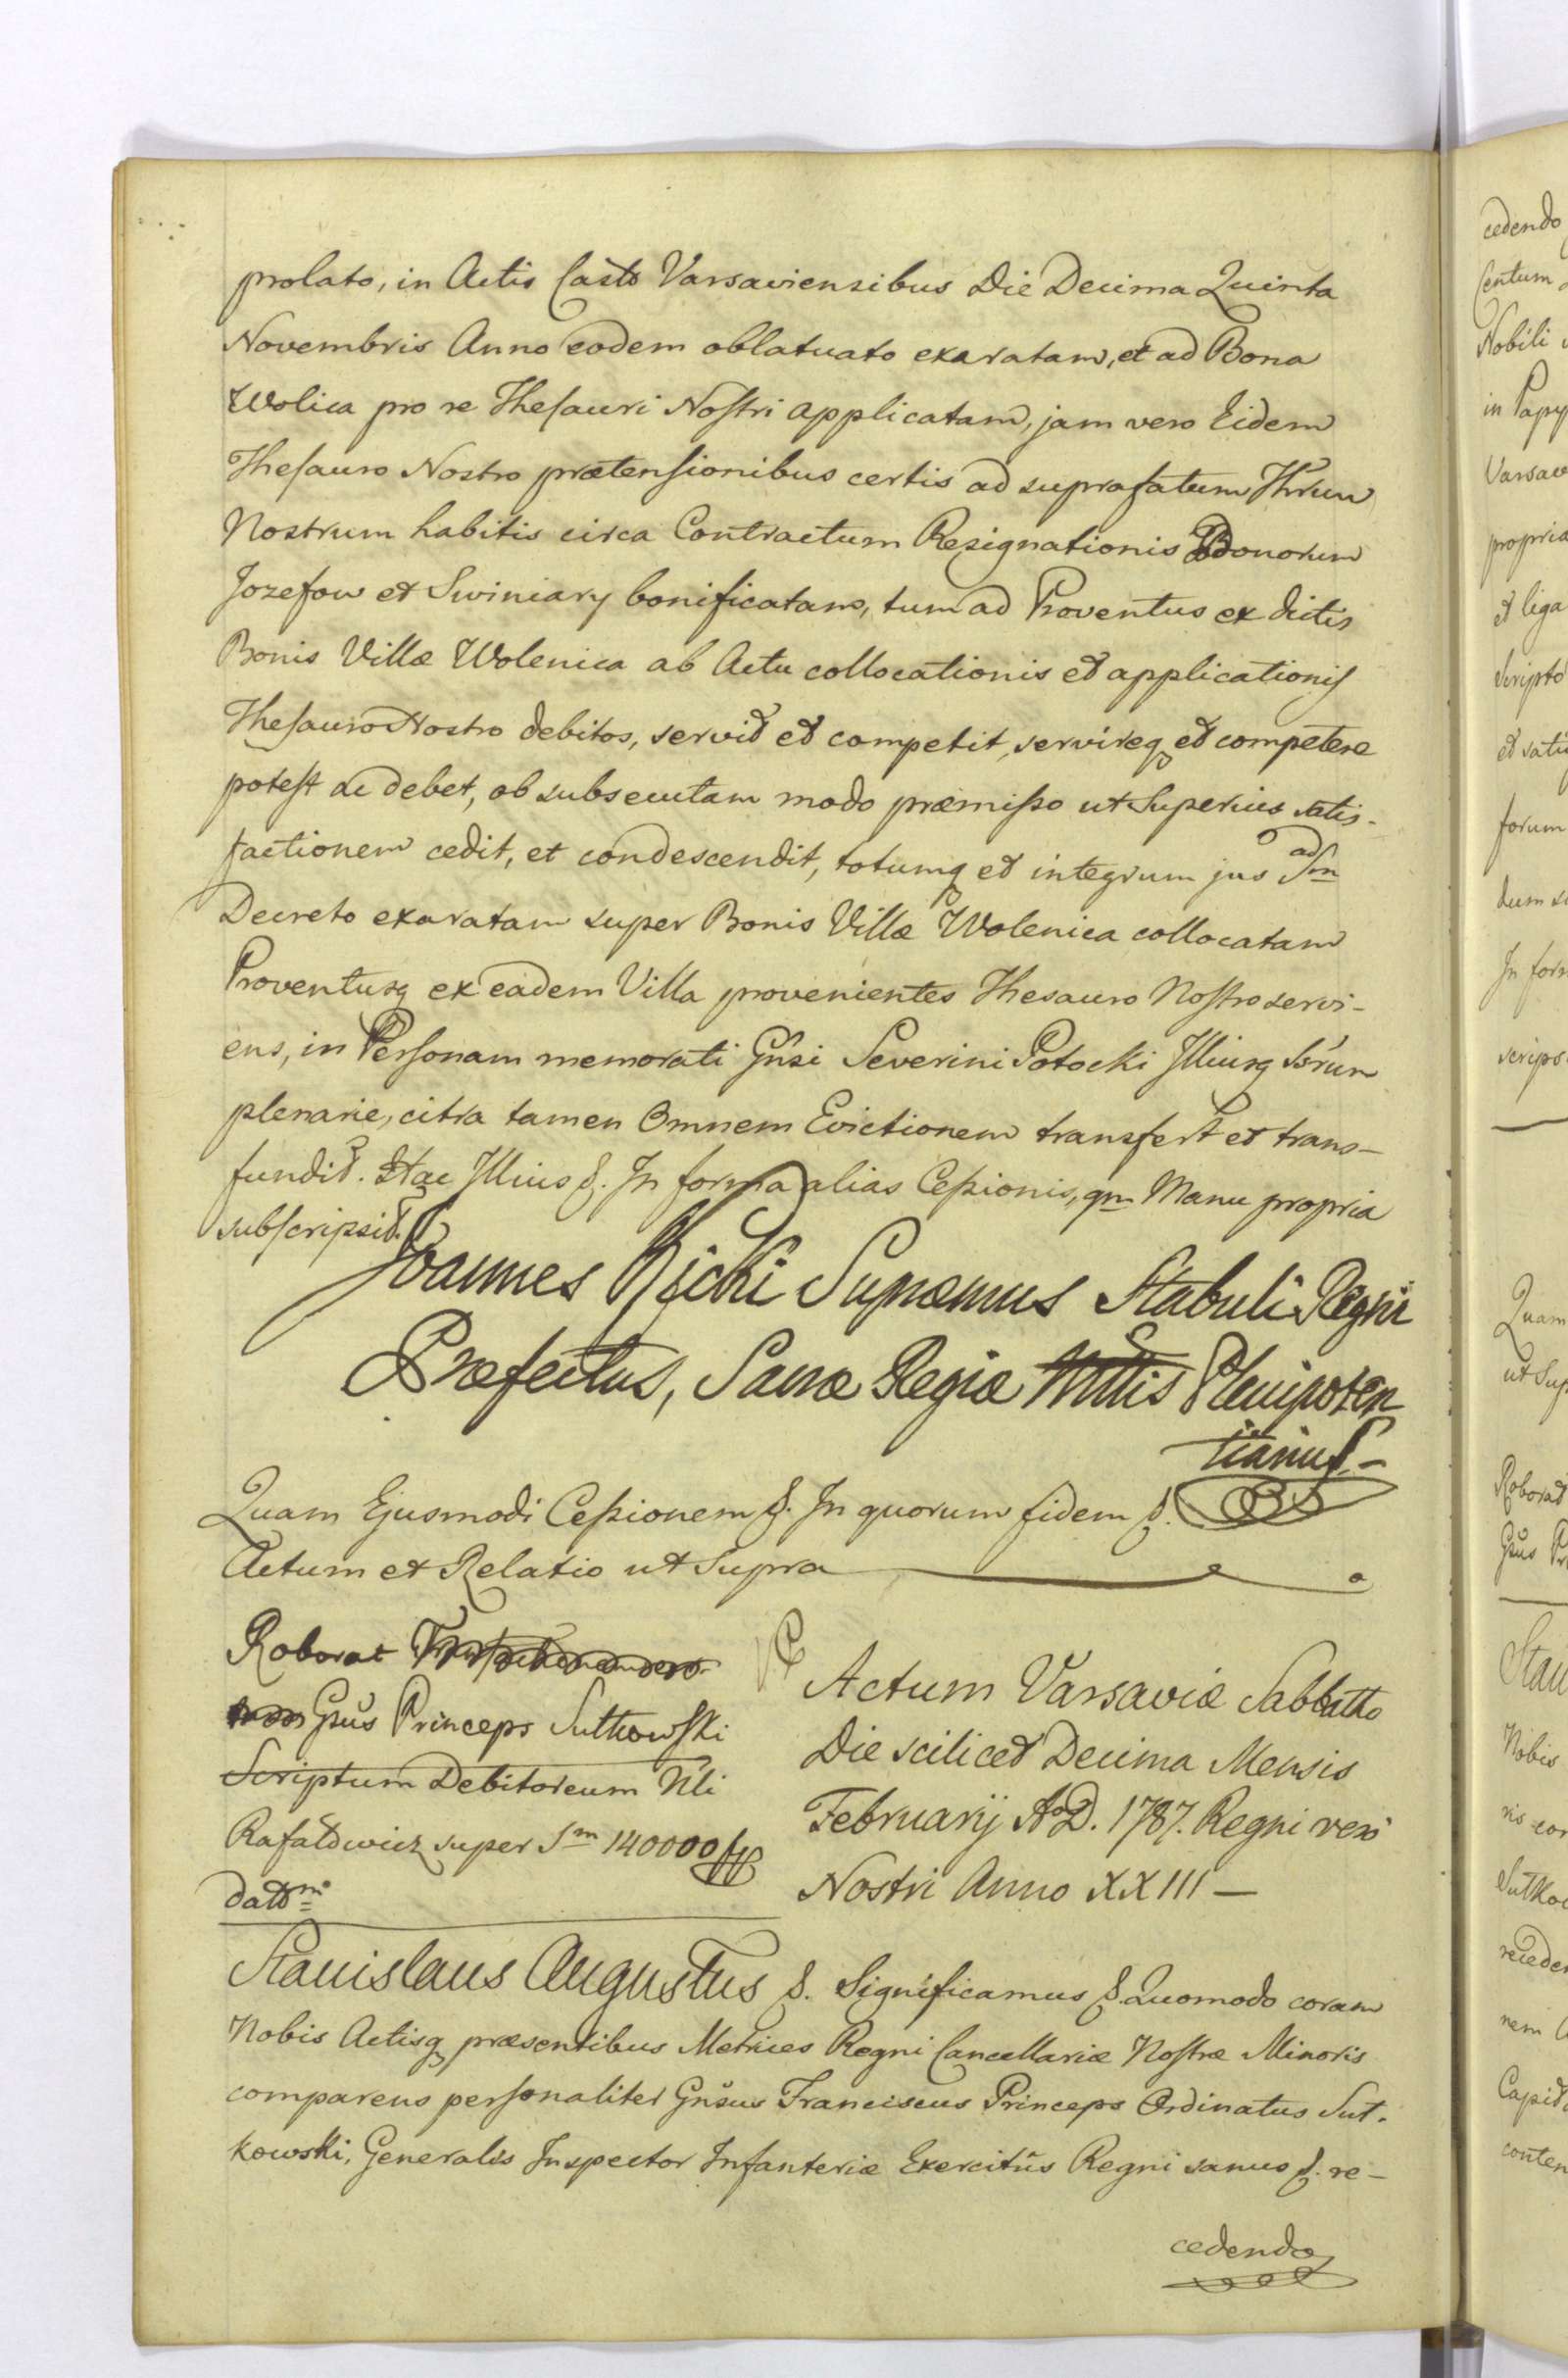 prolato, in Actis Castr Varsaviensibus Die Decima Quinta
Novembris Anno eodem oblatuato exaratam, et ad Bona
Wolica pro re Thesauri Nostri applicatam, jam vero Eidem
Thesauro Nostro prætensionibus certis ad suprafatum Thrum
Nostrum habitis circa Contractum Resignationis Bonorum
Jozefow et Swiniary bonificatam, tum ad Proventus ex dictis
Bonis Villæ Wolenica ab Actu collocationis et applicationis
Thesauro Nostro debitos, servit et competit, servireq et competere
potest ac debet, ob subsecutam modo præmisso ut Superius satis-
factionem cedit, et condescendit, totumq et integrum jus ad Sm
Decreto exaratam super Bonis Villæ Wolenica collocatam
Proventusq ex eadem Villa provenientes Thesauro Nostro servi-
ens, in Personam memorati Gnsi Severini Potocki Illiusq Ssrum
plenarie, citra tamen Omnem Evictionem transfert et trans-
fundit. Hac Illius &. In forma alias Cessionis, qm Manu propria
subscripsit.
Joannes Kicki Supræmus Stabuli Regni
Præfectus, Sacræ Regiæ Mttis Plenipoten
tiarius-
Quam Ejusmodi Cessionem &. In quorum fidem &.
Actum et Relatio ut Supra
Roborat
Gsus Princeps Sułkowski
Scriptum Debitoreum Nli
Rafałowicz super Sm 140000 fl
datt m
Actum Varsaviæ Sabbatto
Die scilicet Decima Mensis
Februarij A.D. 1787. Regni vero
Nostri Anno XXIII —
Stanislaus Augustus &. Significamus &. Quomodo coram
Nobis Actisq præsentibus Metrices Regni Cancellariæ Nostræ Minoris
comparens personaliter Gnsus Franciscus Princeps Ordinatus Suł-
kowski, Generalis Inspector Infanteriæ Exercitûs Regni sanus &. re-
cedendo